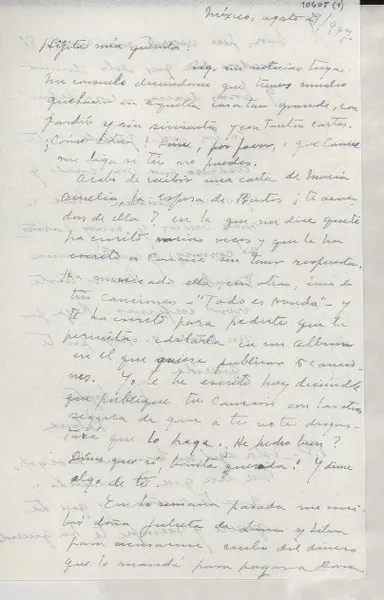 10605 (1)
México, agosto 29/947
¡Hijita mía querida!
Sigo sin noticias tuyas.
Me consuelo diciéndome que tienes mucho
quehacer en aquella casa tan grande, con
jardín y sin sirvientes y con tantas cartas.
¿Cómo estás? Dime, por favor, o que Connie
me diga si tú no puedes.
Acabo de recibir una carta de María
Amelia, la esposa de Bartos ¿te acuer-
das de ella? en la que me dice que te
ha escrito varias veces y que le ha
escrito a Connie sin tener respuesta.
Ha musicado ella con otras, una de
tus canciones - "Todo es ronda" - y
te ha escrito para pedirte que le
permitas editarla en un álbum
en el que quiere publicar 5 cancio-
nes. Yo le he escrito hoy diciéndole
que publique tu canción con las otras
segura de que a ti no te disgus-
tará que lo haga. ¿He hecho bien?
Dime que sí, bonita querida! Y dime
algo de ti.
En la semana pasada me escri-
bió doña Julieta de
para avisarme recibo del dinero
que le mandé para pagar a